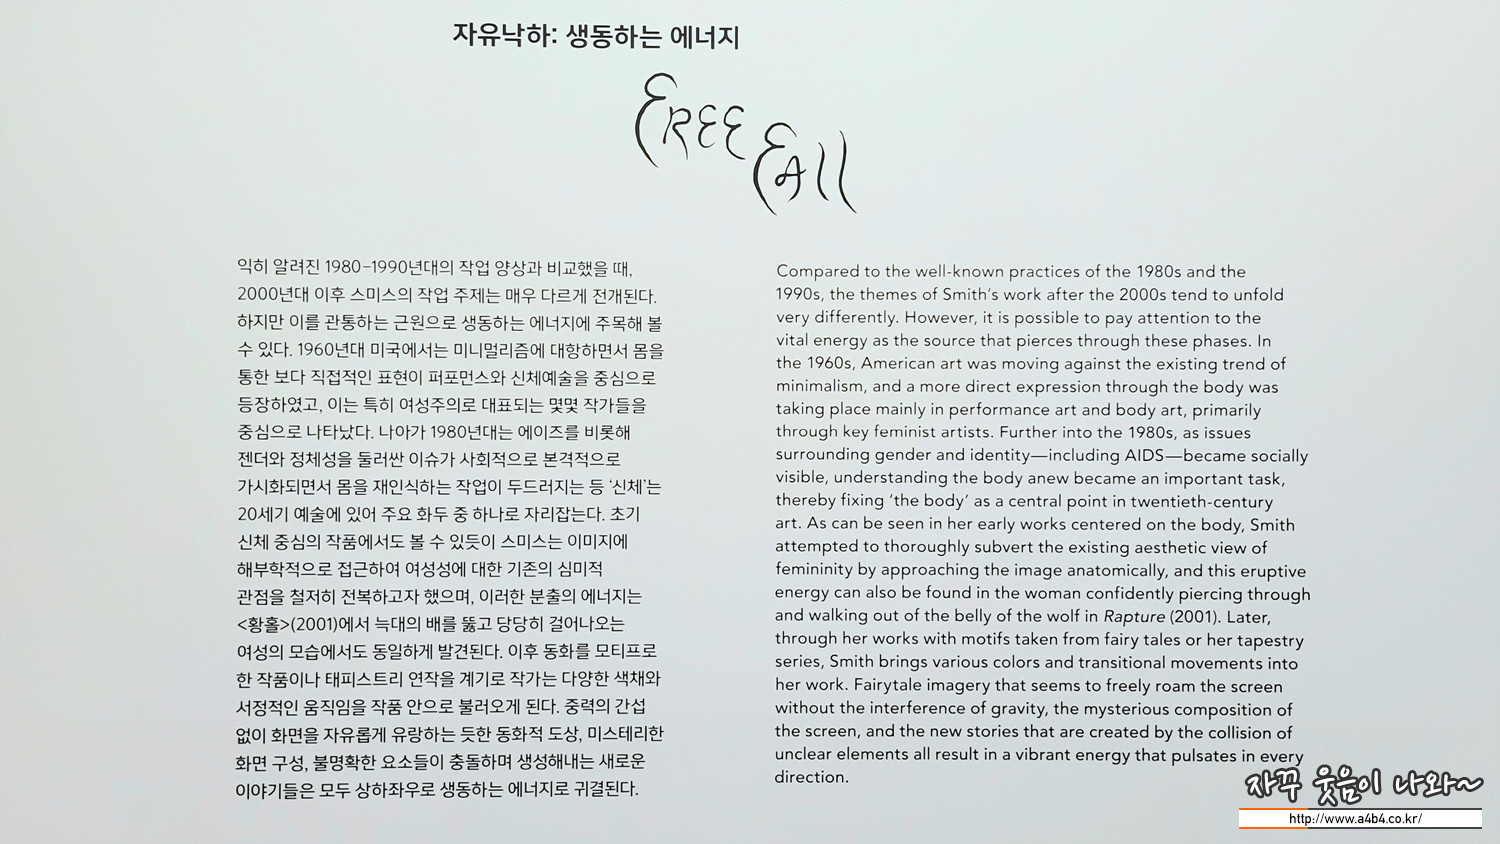 자유낙하: 생동하는 에너지
FREE FAll
익히 알려진 1980-1990년대의 작업 양상과 비교했을 때,
2000년대 이후 스미스의 작업 주제는 매우 다르게 전개된다.
하지만 이를 관통하는 근원으로 생동하는 에너지에 주목해 볼
수 있다. 1960년대 미국에서는 미니멀리즘에 대항하면서 몸을
통한 보다 직접적인 표현이 퍼포먼스와 신체예술을 중심으로
등장하였고, 이는 특히 여성주의로 대표되는 몇몇 작가들을
중심으로 나타났다. 나아가 1980년대는 에이즈를 비롯해
젠더와 정체성을 둘러싼 이슈가 사회적으로 본격적으로
가시화되면서 몸을 재인식하는 작업이 두드러지는 등 ‘신체’는
20세기 예술에 있어 주요 화두 중 하나로 자리잡는다. 초기
신체 중심의 작품에서도 볼 수 있듯이 스미스는 이미지에
해부학적으로 접근하여 여성성에 대한 기존의 심미적
관점을 철저히 전복하고자 했으며, 이러한 분출의 에너지는
<황홀>(2001)에서 늑대의 배를 뚫고 당당히 걸어나오는
여성의 모습에서도 동일하게 발견된다. 이후 동화를 모티프로
한 작품이나 태피스트리 연작을 계기로 작가는 다양한 색채와
서정적인 움직임을 작품 안으로 불러오게 된다. 중력의 간섭
없이 화면을 자유롭게 유랑하는 듯한 동화적 도상, 미스테리한
화면 구성, 불명확한 요소들이 충돌하며 생성해내는 새로운
이야기들은 모두 상하좌우로 생동하는 에너지로 귀결된다.
Compared to the well-known practices of the 1980s and the
1990s, the themes of Smith’s work after the 2000s tend to unfold
very differently. However, it is possible to pay attention to the
vital energy as the source that pierces through these phases. In
the 1960s, American art was moving against the existing trend of
minimalism, and a more direct expression through the body was
taking place mainly in performance art and body art, primarily
through key feminist artists. Further into the 1980s, as issues
surrounding gender and identity—including AIDS—became socially
visible, understanding the body anew became an important task,
thereby fixing ‘the body’ as a central point in twentieth-century
art. As can be seen in her early works centered on the body, Smith
attempted to thoroughly subvert the existing aesthetic view of
femininity by approaching the image anatomically, and this eruptive
energy can also be found in the woman confidently piercing through
and walking out of the belly of the wolf in Rapture (2001). Later,
through her works with motifs taken from fairy tales or her tapestry
series, Smith brings various colors and transitional movements into
her work. Fairytale imagery that seems to freely roam the screen
without the interference of gravity, the mysterious composition of
the screen, and the new stories that are created by the collision of
unclear elements all result in a vibrant energy that pulsates in every
direction.
자꾸 웃음이 나와~
http://www.a4b4.co.kr/